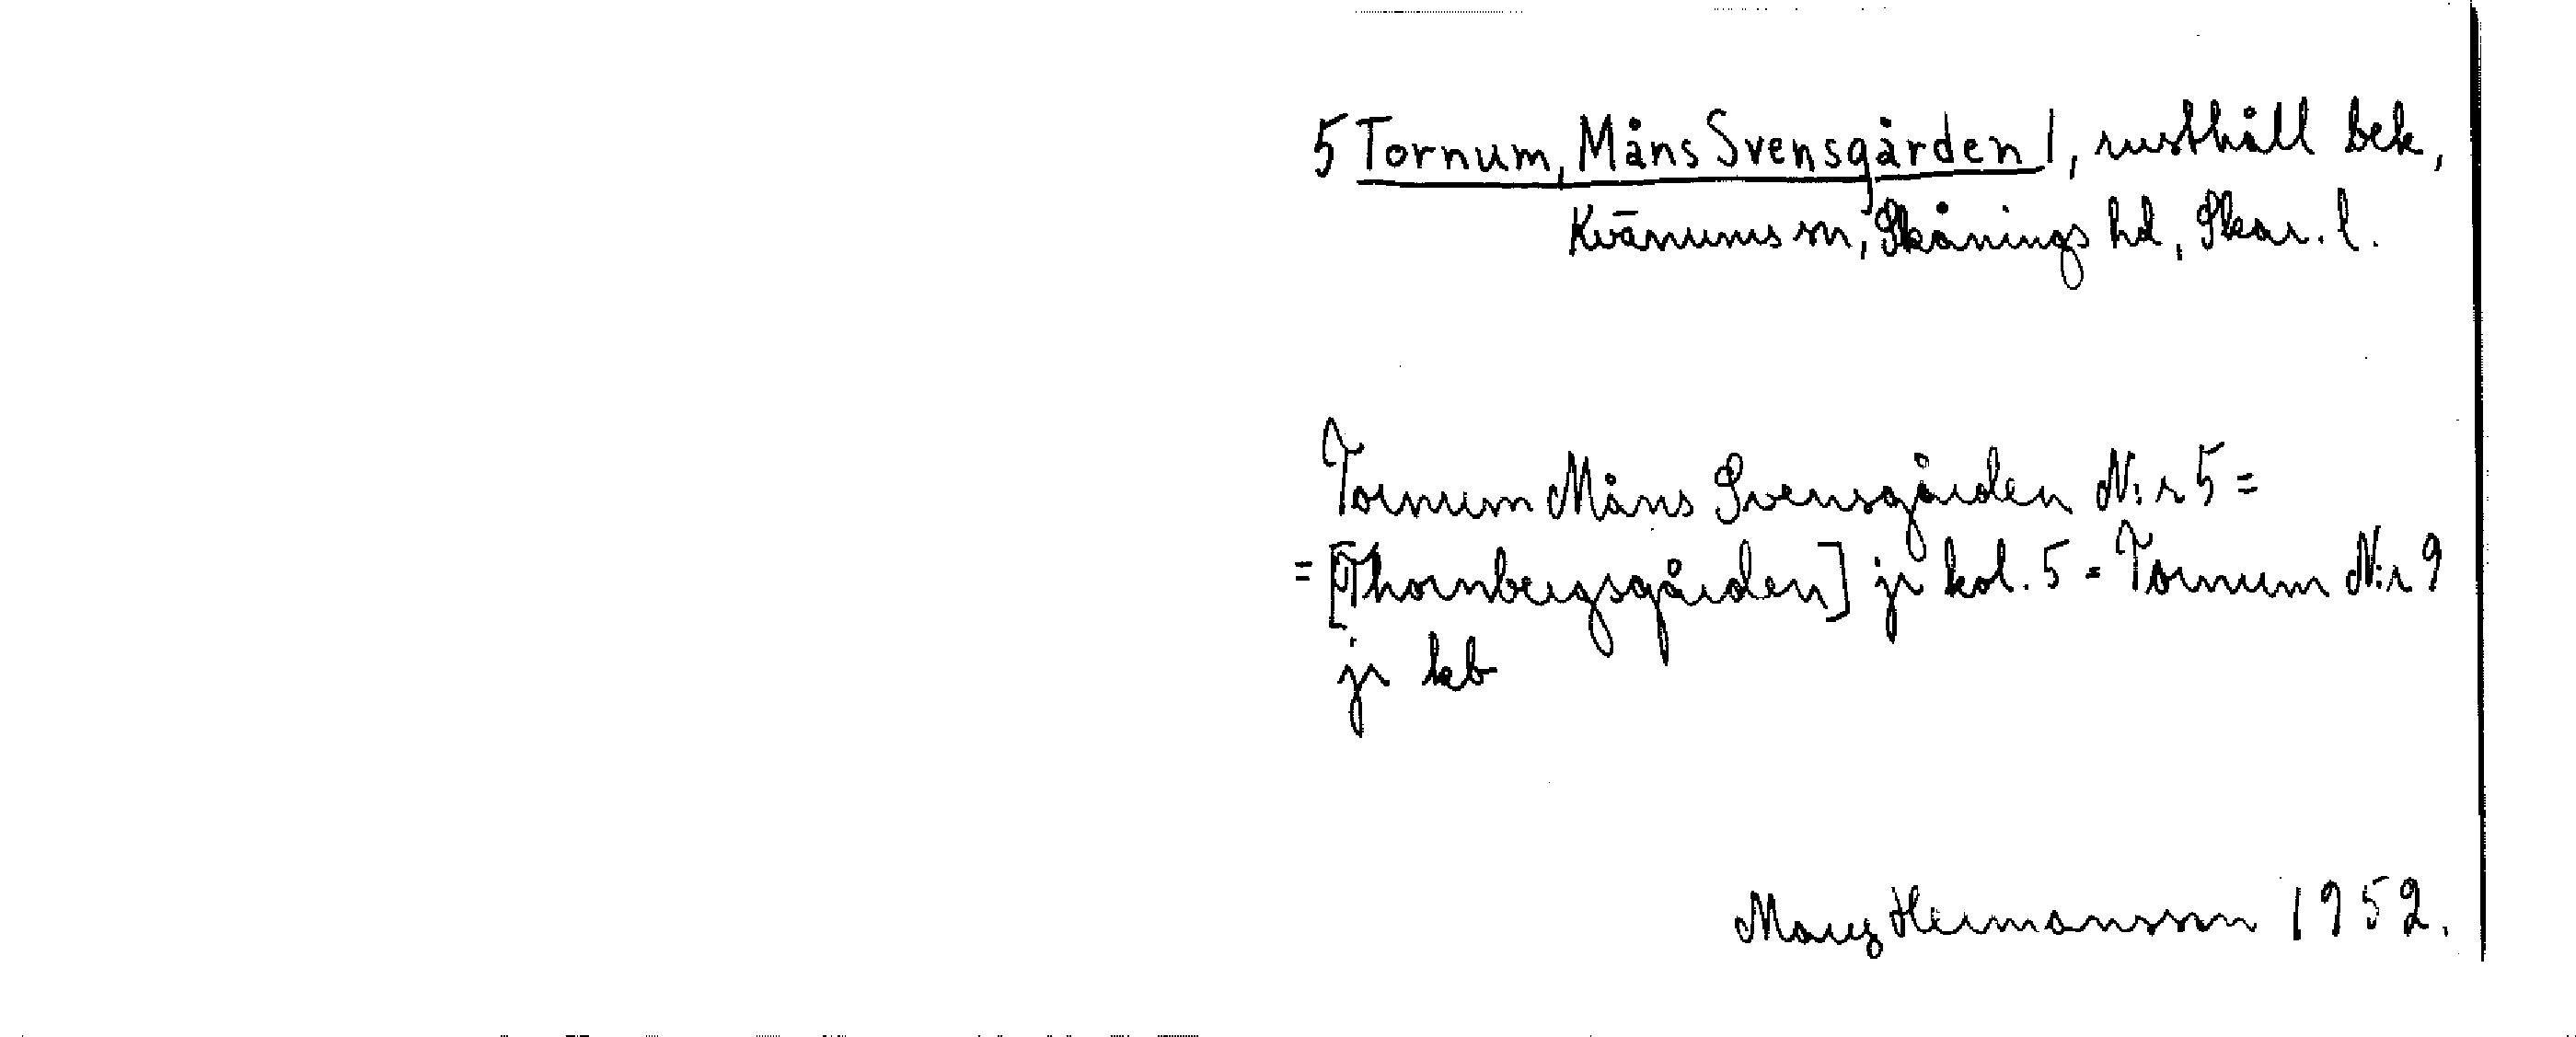 5 Tornum, Måns Svensgården 1, rusthåll bek,
Kvänums sn, Skånings hd, Skar. l.
Tornum Måns Svensgården N:r 5 =
= [Thornbergsgården] jr kol. 5 = Tornum N:r 9
jr kb
Hermansson 1952.